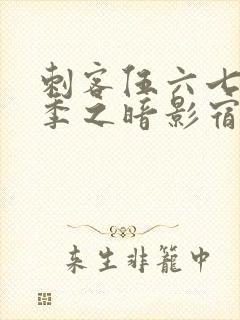 刺客伍六七
季之暗影宿
来生非笼中